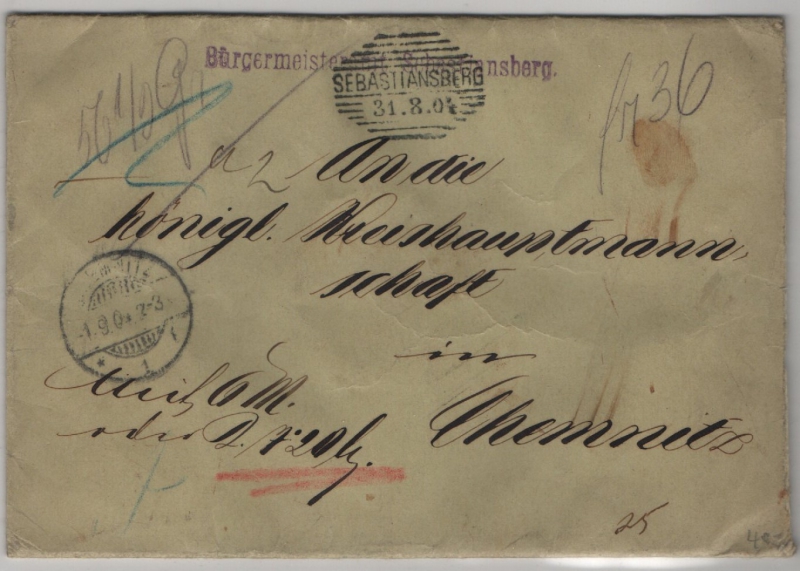 Bürgermeisteramt Sebastiansberg.
SEBASTIANSBERG
31.8.04
36
An die
königl. Kreishauptmann-
schaft
in
Chemnitz
1.9.04 2-3
* 1 f
Mit 6 M.
oder 7.20 h.
25